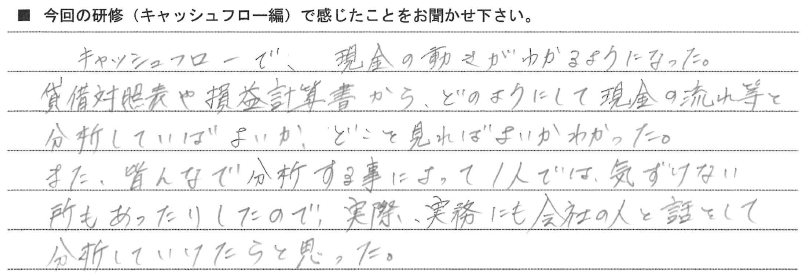 ■ 今回の研修（キャッシュフロー編）で感じたことをお聞かせ下さい。
キャッシュフローで、現金の動きがわかるようになった。
貸借対照表や損益計算書から、どのようにして現金の流れ等を
分析していけばよいか、どこを見ればよいかわかった。
また、皆んなで分析する事によって1人では、気ずけない
所もあったりしたので、実際、実務にも会社の人と話をして
分析していけたらと思った。